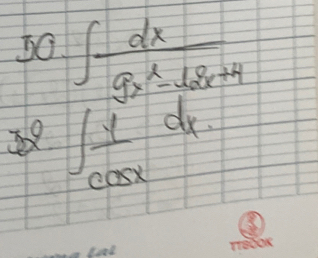 50. ∫ dx / 9x² - 12x + 4
52. ∫ 1 / cosx dx.
TTBOOK